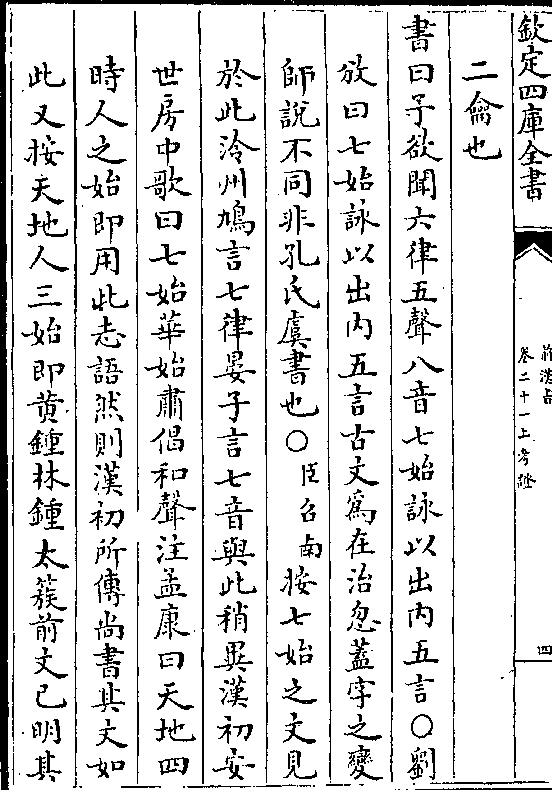 欽定四庫全書
前漢書
卷二十一上考證
四
二龠也
書曰予欲聞六律五聲八音七始詠以出内五言○劉
攽曰七始詠以出内五言古文爲在治忽蓋字之變
師說不同非孔氏虞書也○臣召南按七始之文見
於此泠州鳩言七律晏子言七音與此稍異漢初安
世房中歌曰七始華始肅倡和聲注孟康曰天地四
時人之始即用此志語然則漢初所傳尚書其文如
此又按天地人三始即黄鍾林鍾太簇前文已明其